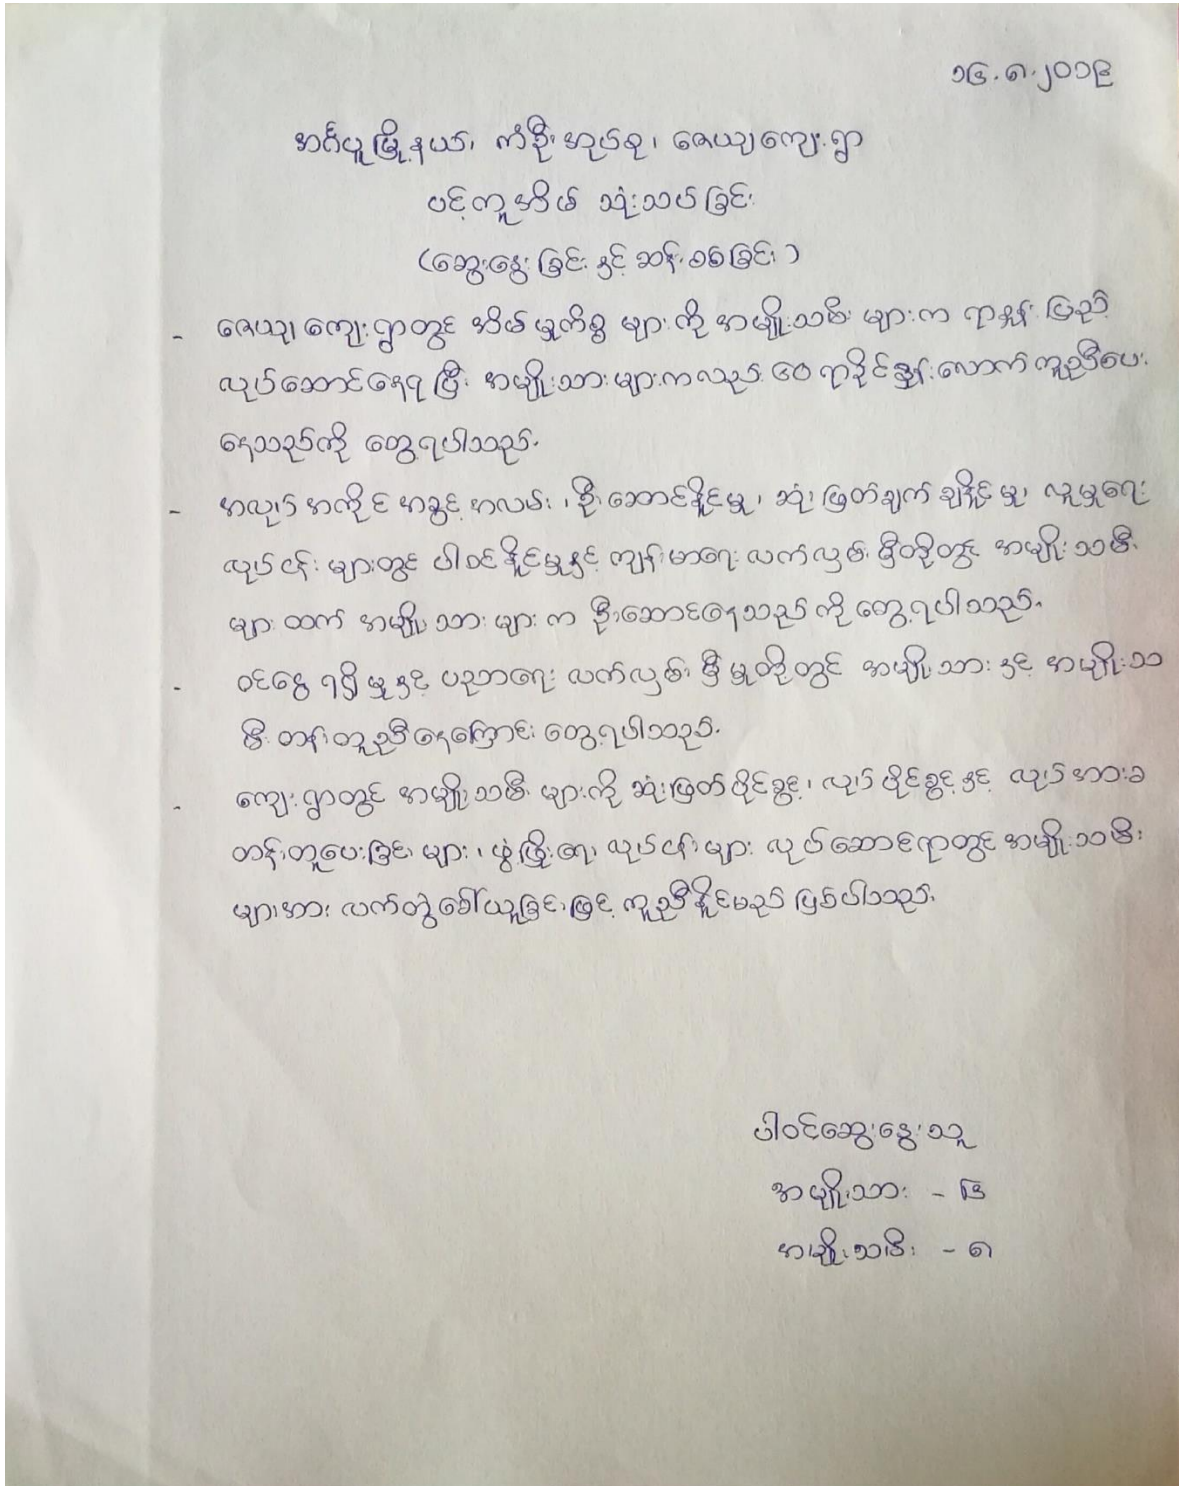 ၁၄.၈.၂၀၁၉
အင်္ဂပူမြို့နယ်၊ ကံဦးအုပ်စု၊ ဇေယျကျေးရွာ
ပင့်ကူအိမ် သုံးသပ်ခြင်း
(ဆွေးနွေးခြင်းနှင့် ဆန်းစစ်ခြင်း)
- ဇေယျကျေးရွာတွင် အိမ်မှုကိစ္စ များကို အမျိုးသမီး များက ရာနှုန်းပြည့်
လုပ်ဆောင်နေရပြီး အမျိုးသားများကလည်း ၆၀ ရာခိုင်နှုန်းလောက် ကူညီပေး
နေသည်ကို တွေ့ရပါသည်။
- အလုပ်အကိုင် အခွင့်အလမ်း၊ ဦးဆောင်နိုင်မှု၊ ဆုံးဖြတ်ချက် ချနိုင်မှု၊ လူမှုရေး
လုပ်ငန်း များတွင် ပါဝင်နိုင်မှုနှင့် ကျန်းမာရေး လက်လှမ်းမှီတို့တွင် အမျိုးသမီး
များထက် အမျိုးသားများက ဦးဆောင်နေသည်ကို တွေ့ရပါသည်။
- ဝင်ငွေ ရရှိမှုနှင့် ပညာရေး လက်လှမ်းမှီမှုတို့တွင် အမျိုးသားနှင့် အမျိုးသ
မီး တန်းတူညီနေကြောင်း တွေ့ရပါသည်။
- ကျေးရွာတွင် အမျိုးသမီးများကို ဆုံးဖြတ်ပိုင်ခွင့်၊ လုပ်ပိုင်ခွင့်နှင့် လုပ်အားခ
တန်းတူပေးခြင်းများ၊ ဖွံ့ဖြိုးရေးလုပ်ငန်းများ လုပ်ဆောင်ရာတွင် အမျိုးသမီး
များအား လက်တွဲခေါ်ယူခြင်းဖြင့် ကူညီနိုင်မည် ဖြစ်ပါသည်။
ပါဝင်ဆွေးနွေးသူ
အမျိုးသား - ၉
အမျိုးသမီး - ၈